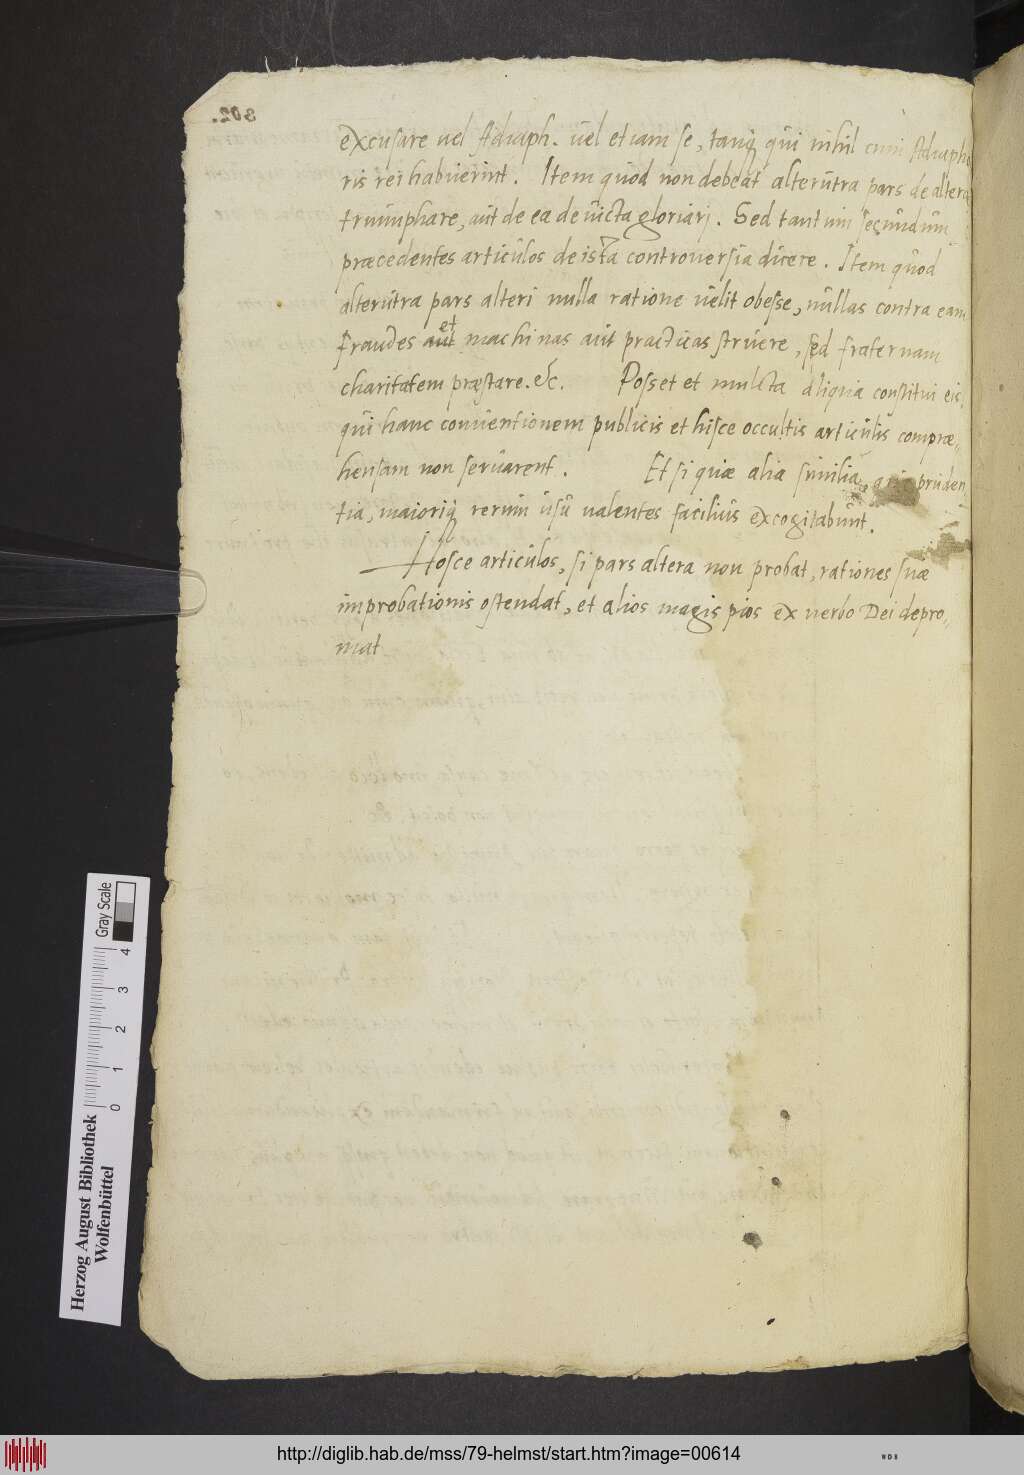 302.
excusare uel Adiaph. uel etiam se, tanq̄ qui nihil cum Adiapho
ris rei habuerint. Item quod non debeat alterutra pars de altera
triumphare, aut de ea deuicta gloriari. Sed tantum secundum
præcedentes articulos de ista controuersia dicere. Item quod
alterutra pars alteri nulla ratione uelit obesse, nullas contra eam
et
fraudes aut machinas aut practicas struere, sed fraternam
charitatem præstare. etc. Posset et mulcta aliqua constitui eis,
qui hanc conuentionem publicis et hisce occultis articulis compræ-
hensam non seruarent. Et si quæ alia similia, pruden
tia, maioriq; rerum usu ualentes facilius excogitabunt.
Hosce articulos, si pars altera non probat, rationes suæ
improbationis ostendat, et alios magis pios ex uerbo Dei depro-
mat
Gray Scale
0 1 2 3 4
Herzog August Bibliothek
Wolfenbüttel
http://diglib.hab.de/mss/79-helmst/start.htm?image=00614
WDB